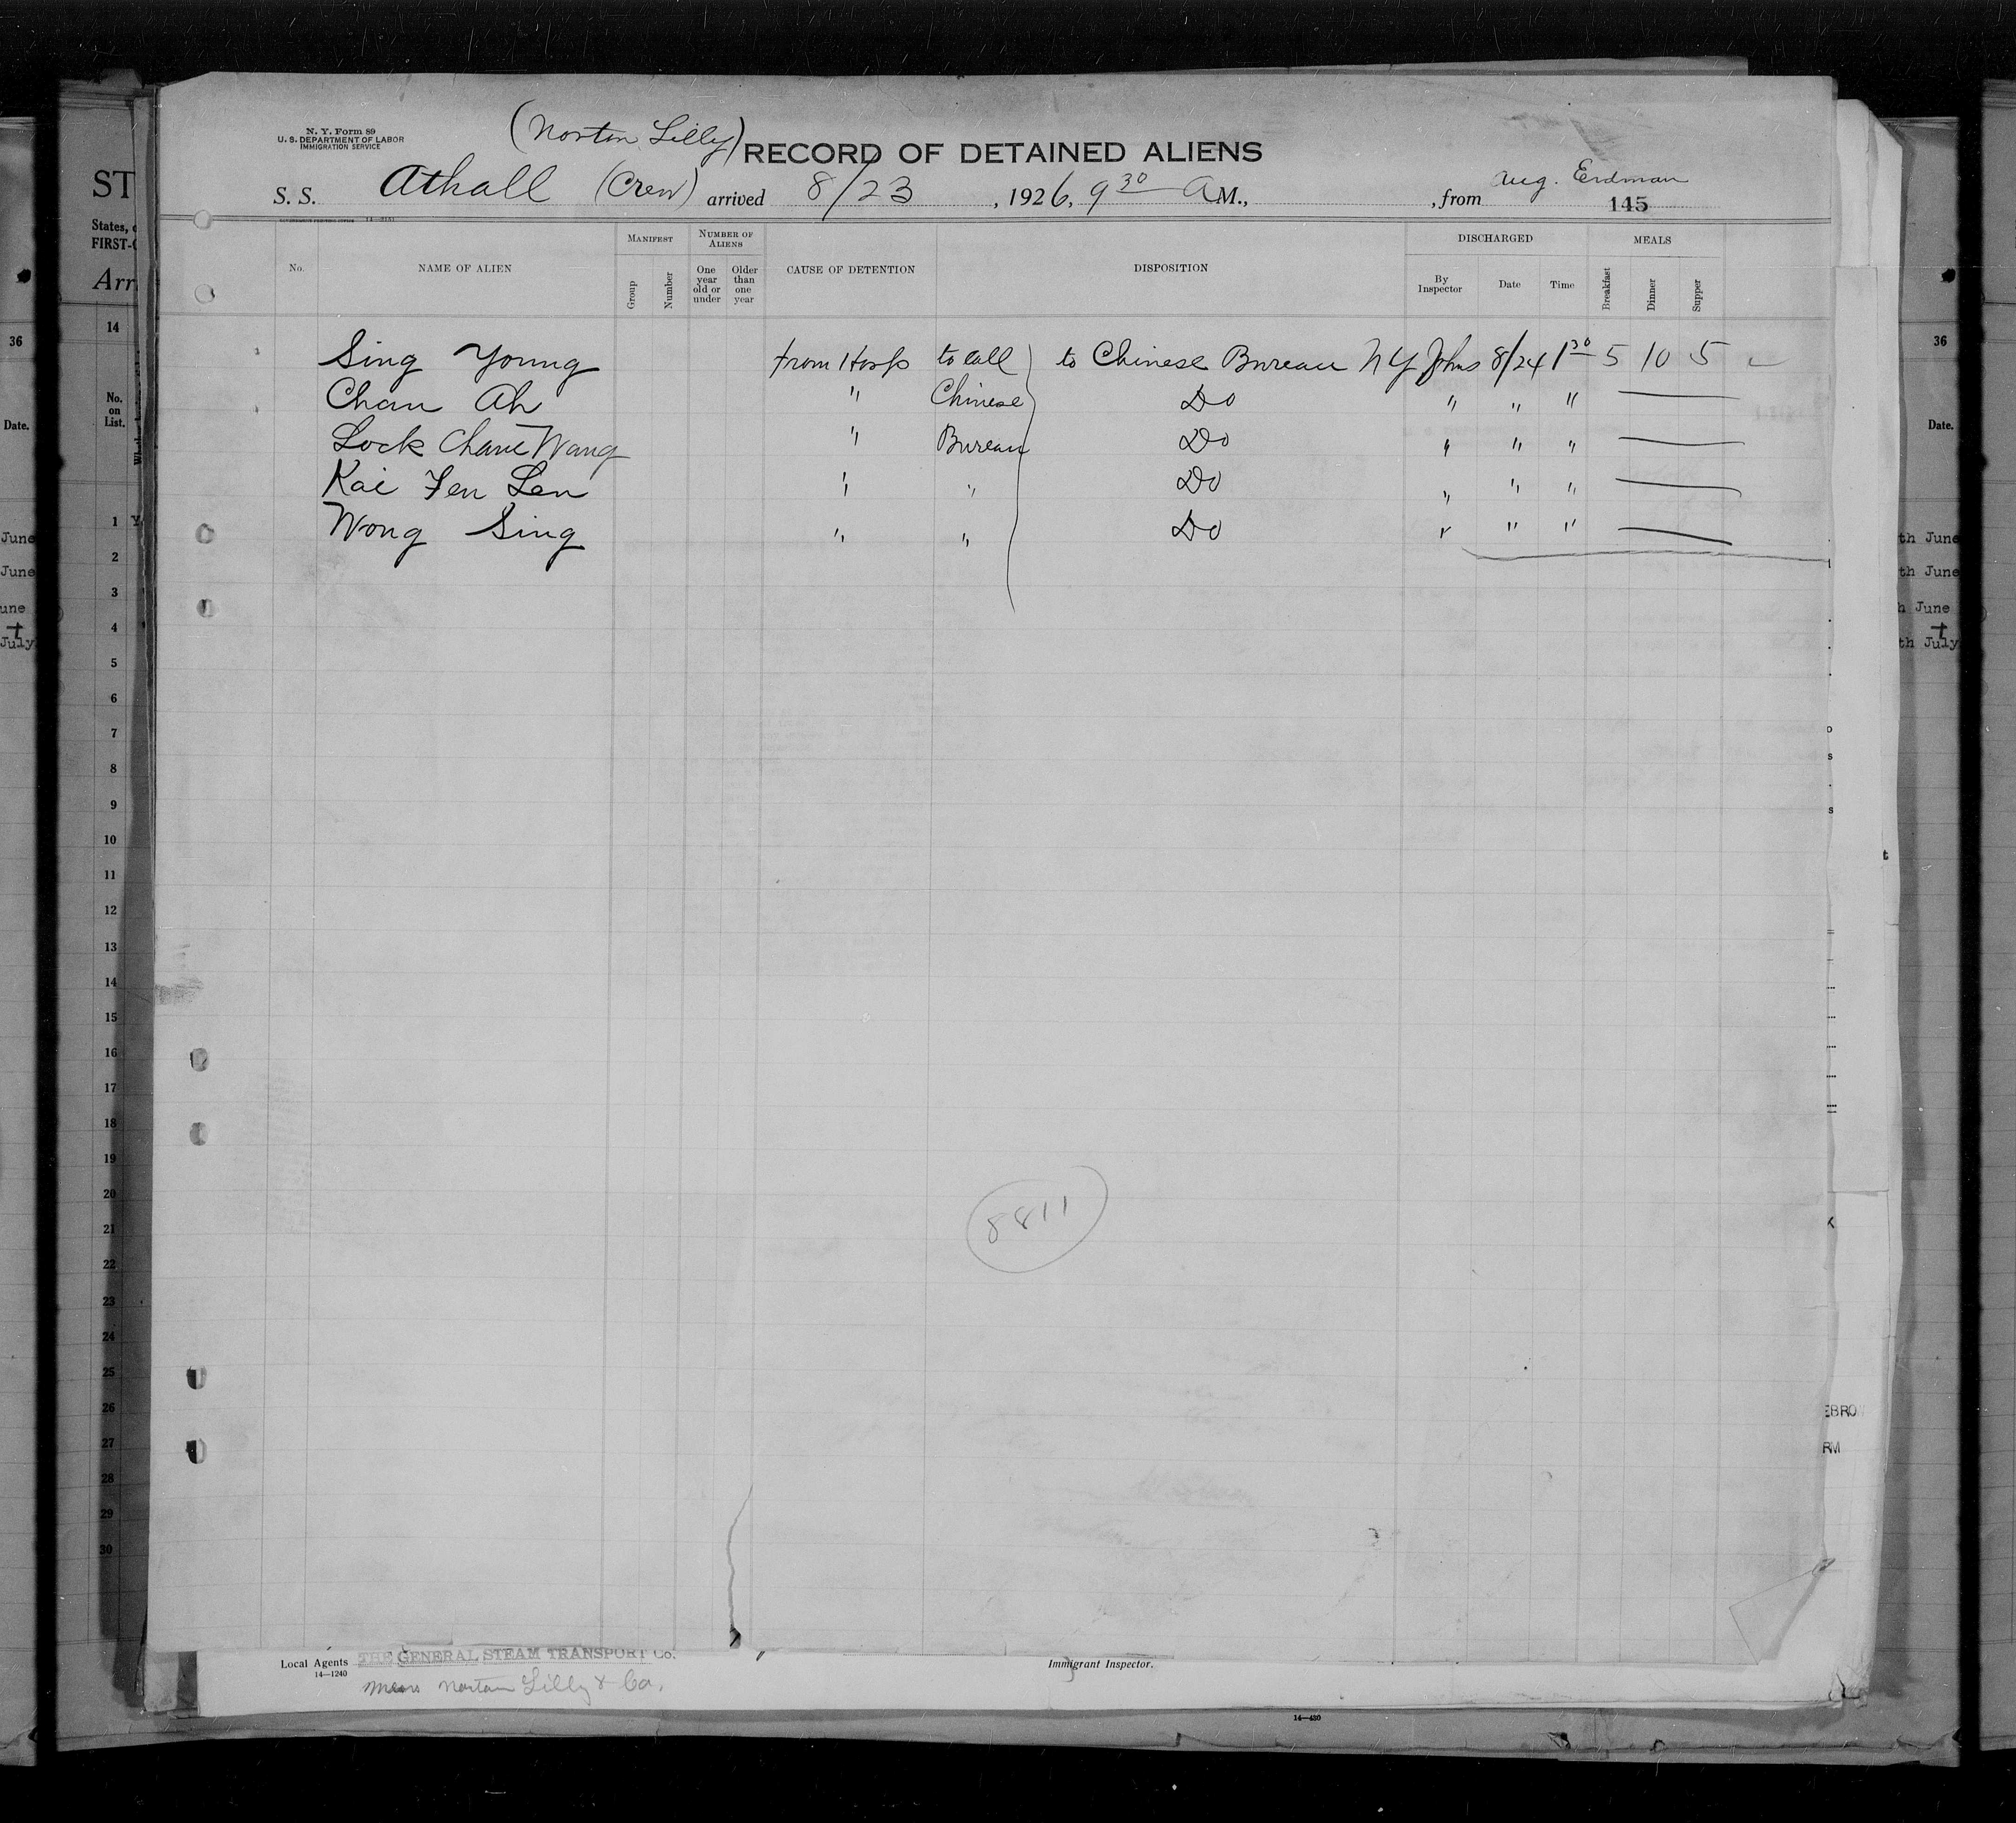 N. Y. Form 89
U. S. DEPARTMENT OF LABOR
IMMIGRATION SERVICE
(Norton Lilly)
RECORD OF DETAINED ALIENS
S. S. Athall (Crew) arrived 8/23, 1926, 9 30 A M., , from Aug. Erdman
145
No.
NAME OF ALIEN
MANIFEST
Group
Number
NUMBER OF ALIENS
One year old or under
Older than one year
CAUSE OF DETENTION
DISPOSITION
DISCHARGED
By Inspector
Date
Time
MEALS
Breakfast
Dinner
Supper
Sing Young from Hosp to call to Chinese Bureau N Y Johns 8/24 1 30 5 10 5
Chan Ah " Chinese Do " " "
Lock Chane Wang " Bureau Do " " "
Kai Fen Len " " Do " " "
Wong Sing " " Do " " "
8811
Local Agents THE GENERAL STEAM TRANSPORT Co.
14—1240
Norton Lilly & Co.
Immigrant Inspector.
14—430
ST
States,
FIRST-C
Arr
14
No. on List.
1
2
3
4
5
6
7
8
9
10
11
12
13
14
15
16
17
18
19
20
21
22
23
24
25
26
27
28
29
30
36
Date.
June
June
une
July
36
Date.
th June
th June
h June
th July
EBRO
RM